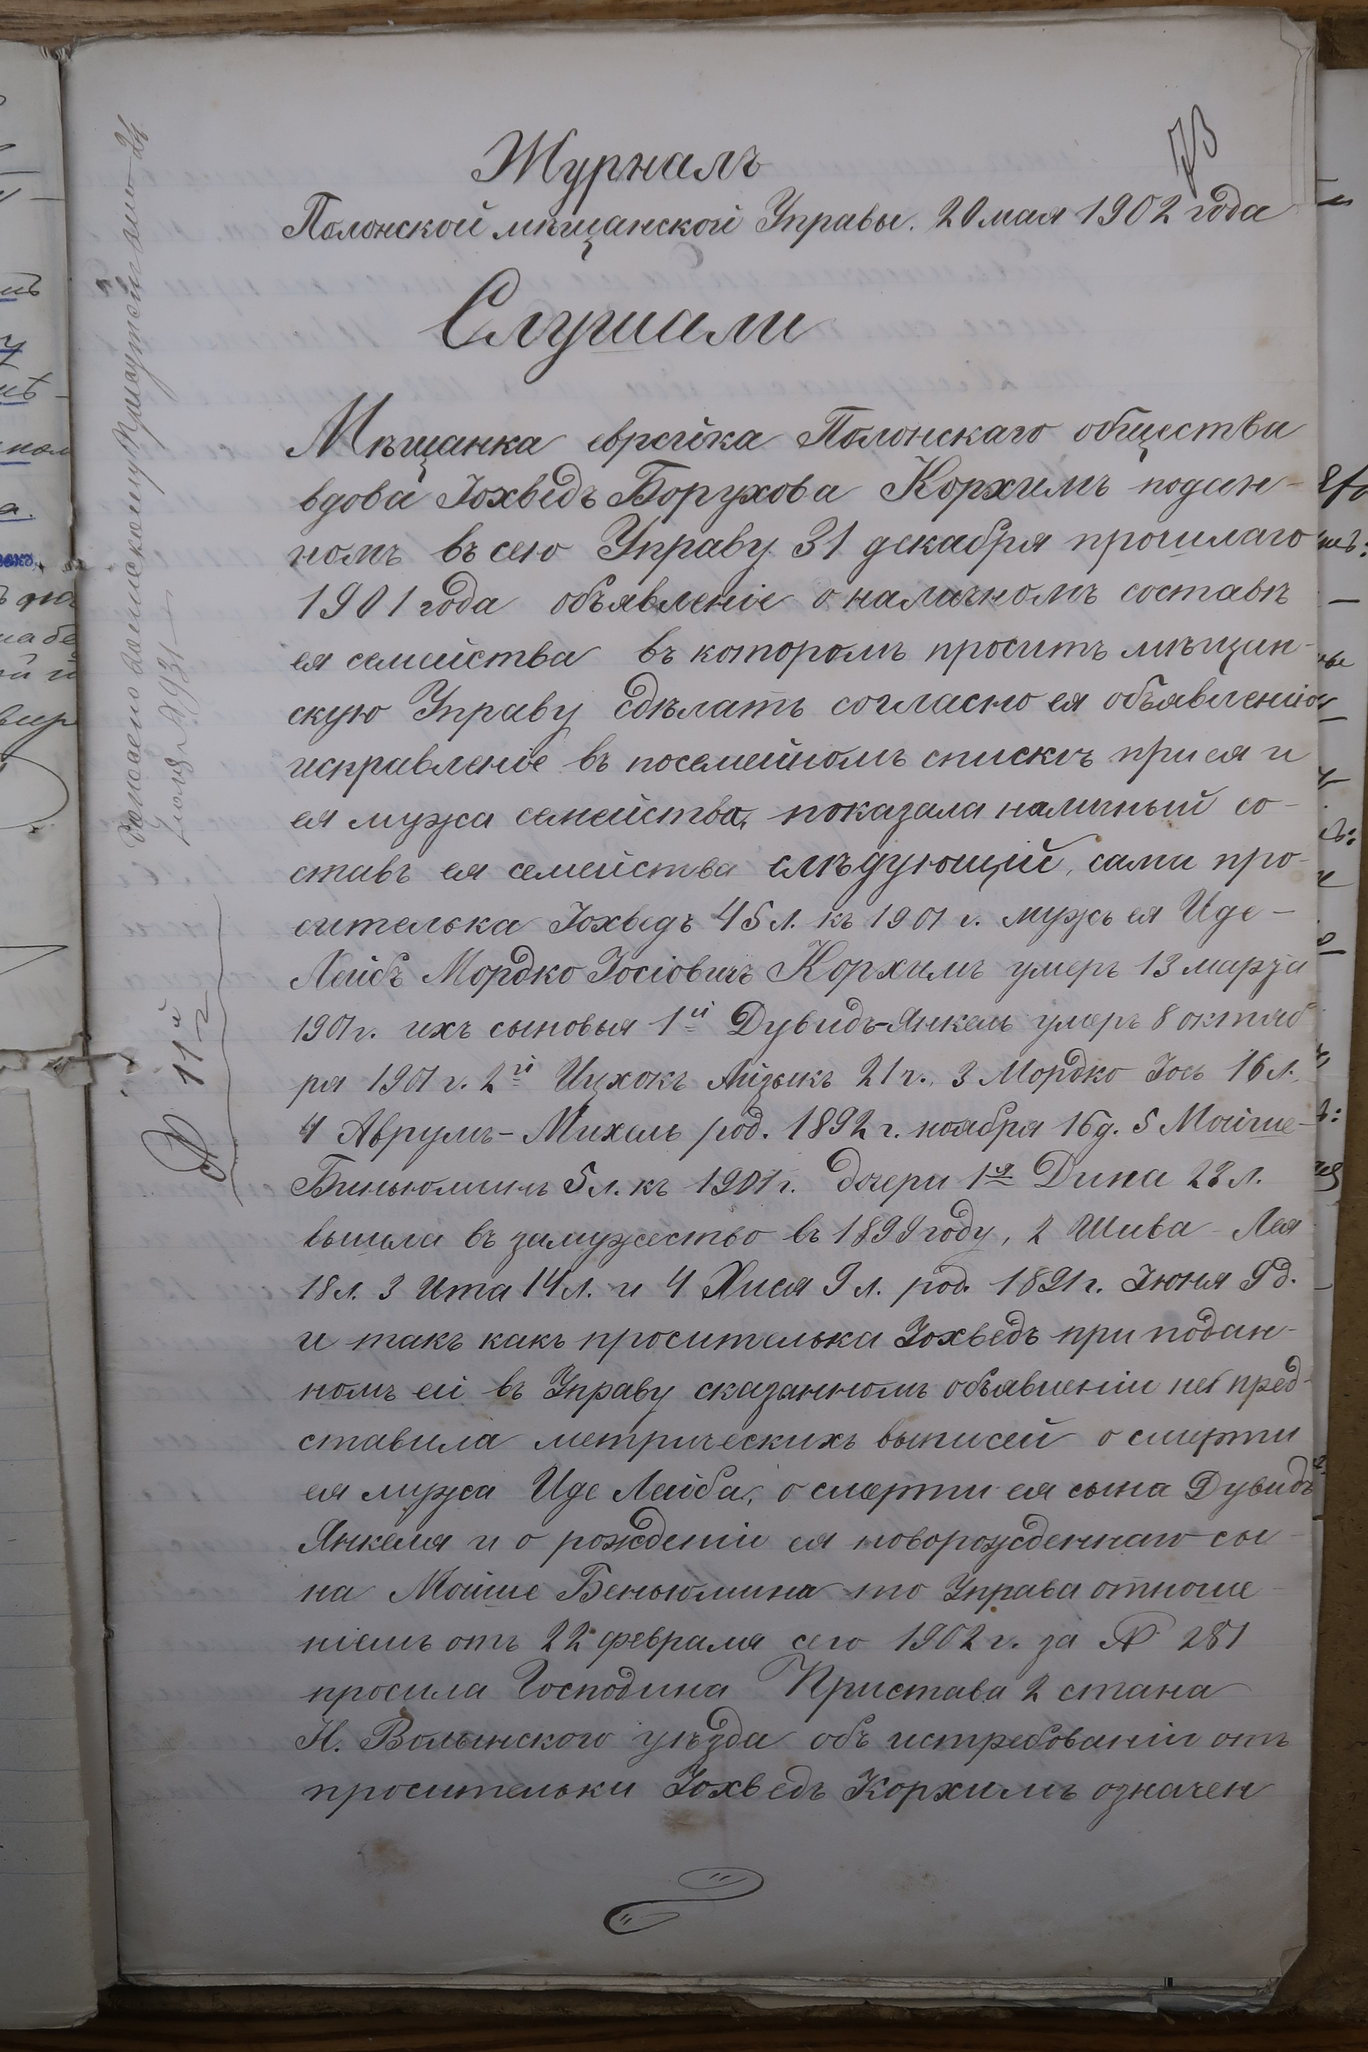 73
Журналъ
Полонской мѣщанской Управы. 20 мая 1902 года
Слушали
Мѣщанка еврейка Полонскаго общества
вдова Іохведъ Борухова Корхимъ подан-
номъ въ сею Управу 31 декабря прошлаго
1901 года объявленіе о наличномъ составѣ
ея семейства въ которомъ проситъ мѣщан-
скую Управу сдѣлать согласно ея объявленію
исправленіе въ посемейномъ спискѣ при ея и
ея мужа семейства, показала наличный со-
ставъ ея семейства слѣдующій, сама про-
сителька Іохведъ 45 л. къ 1901 г. мужъ ея Иде-
Лейбъ Мордко Іосіовичъ Корхимъ умеръ 13 марта
1901 г. ихъ сыновья 1й Дувидъ-Янкель умеръ 8 октяб
ря 1901 г. 2й Ицхокъ Айзыкъ 21 г., 3 Мордко Іось 16 л.,
4 Аврумъ-Михель род. 1892 г. ноября 16 д. 5 Мойше-
Биньюминъ 5 л. къ 1901 г. дочери 1я Дина 22 л.
вышла въ замужество въ 1899 году, 2 Шива-Лея
18 л. 3 Ита 14 л. и 4 Хися 9 л. род. 1891 г. Іюня 9 д.
и такъ какъ просителька Іохведъ при подан-
номъ ей въ Управу сказанномъ объявленіи не пред-
ставила метрическихъ выписей о смерти
ея мужа Иде Лейба, о смерти ея сына Дувидъ
Янкеля и о рожденіи ея новорожденнаго сы-
на Мойше Беньюмина то Управа отноше
ніемъ отъ 22 февраля сего 1902 г. за № 281
просила Господина Пристава 2 стана
Н. Волынского уѣзда объ истребованіи отъ
просительки Іохведъ Корхимъ означен
№ 11й